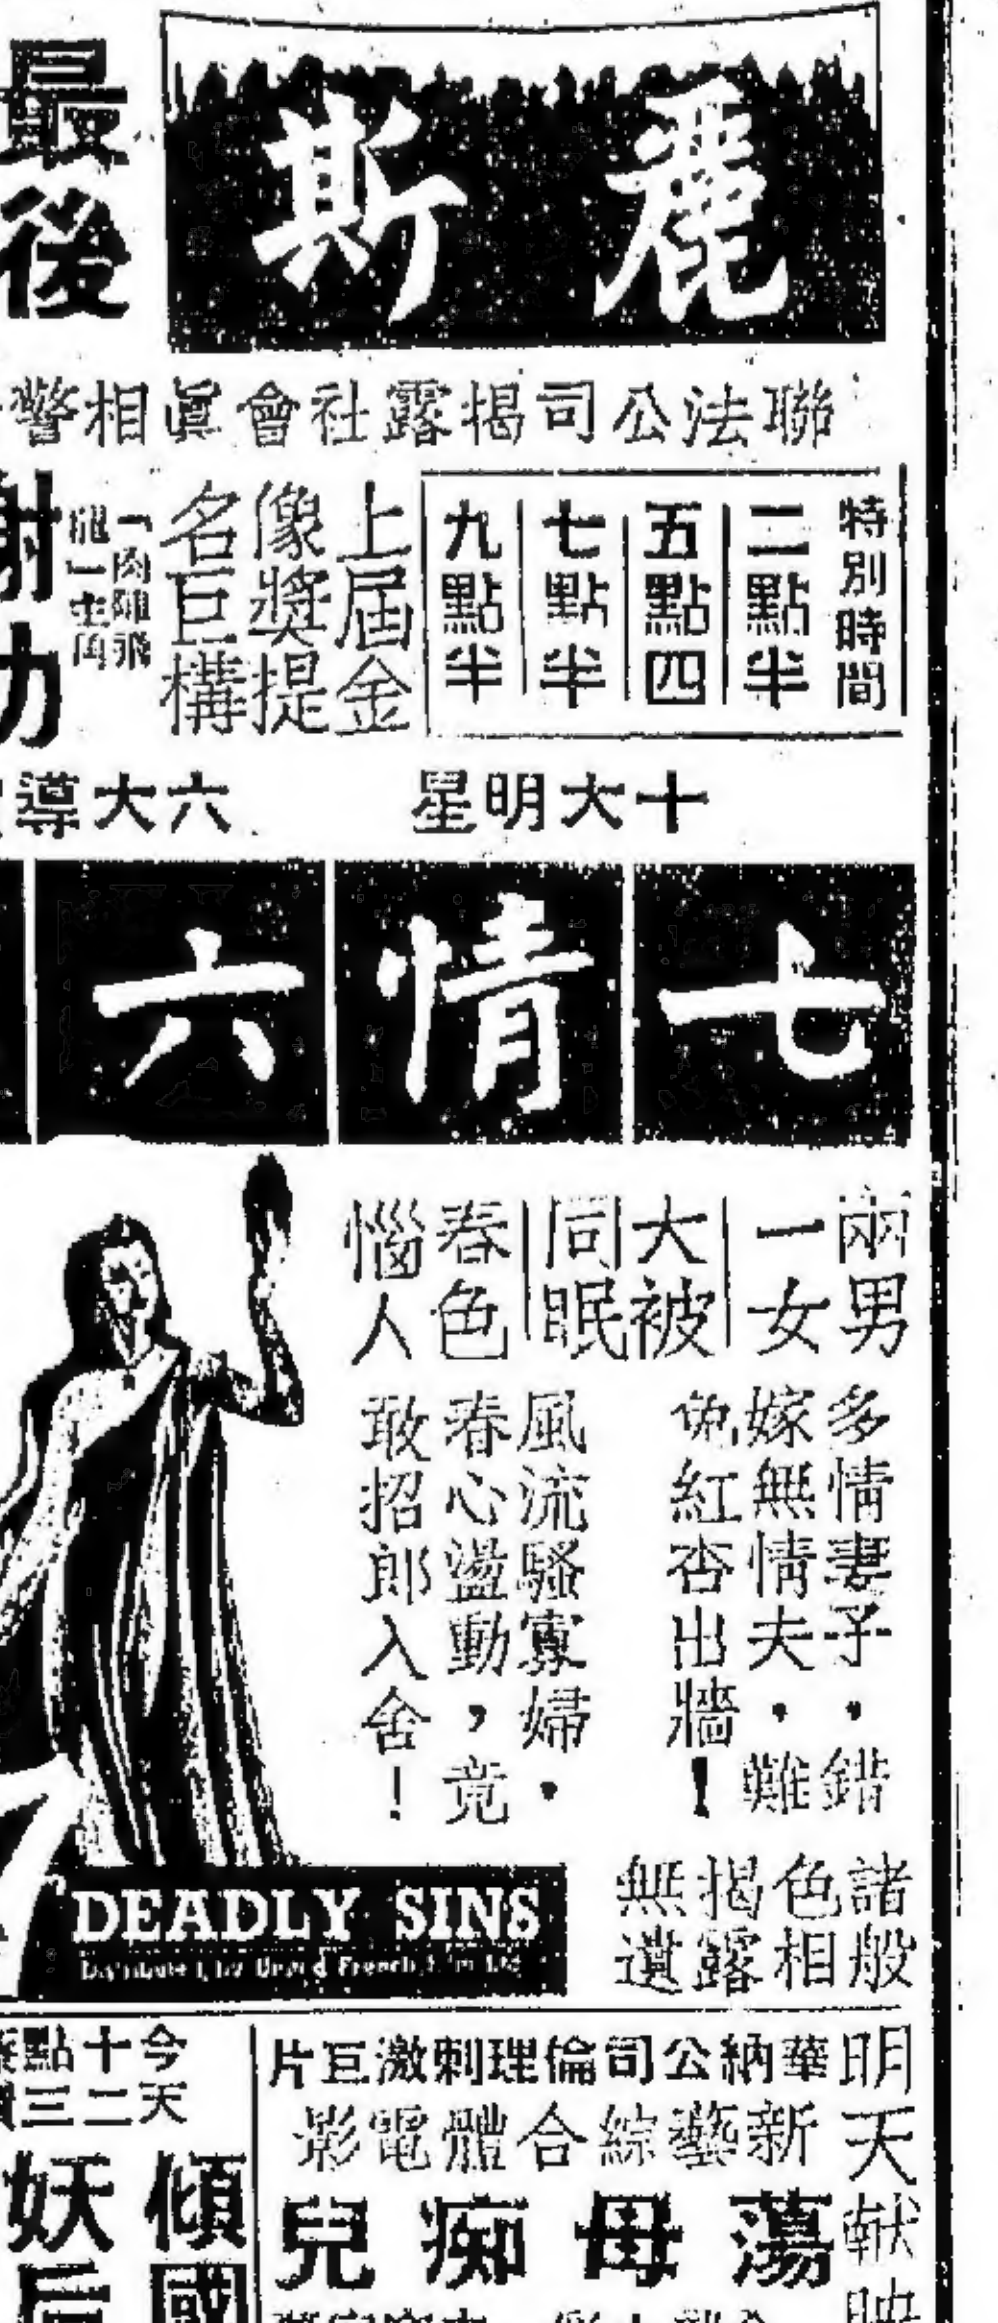 麗斯
最後
聯法公司揭露社會眞相警
特別時間
二點半
五點四
七點半
九點半
上屆金
像獎提
名巨構
「肉陣飛
龍」主角
謝
功
十大明星
六大導
七情六
兩男
一女
大被
同眠
春色
惱人
多情妻子·錯
嫁無情夫·難
免紅杏出牆!
風流騷寡婦·
春心盪動,竟
敢招郎入舍!
諸般
色相
揭露
無遺
DEADLY SINS
明天献映
華納公司倫理刺激巨片
新藝綜合體電影
蕩母痴兒
今天
十二
點三
傾國
妖后